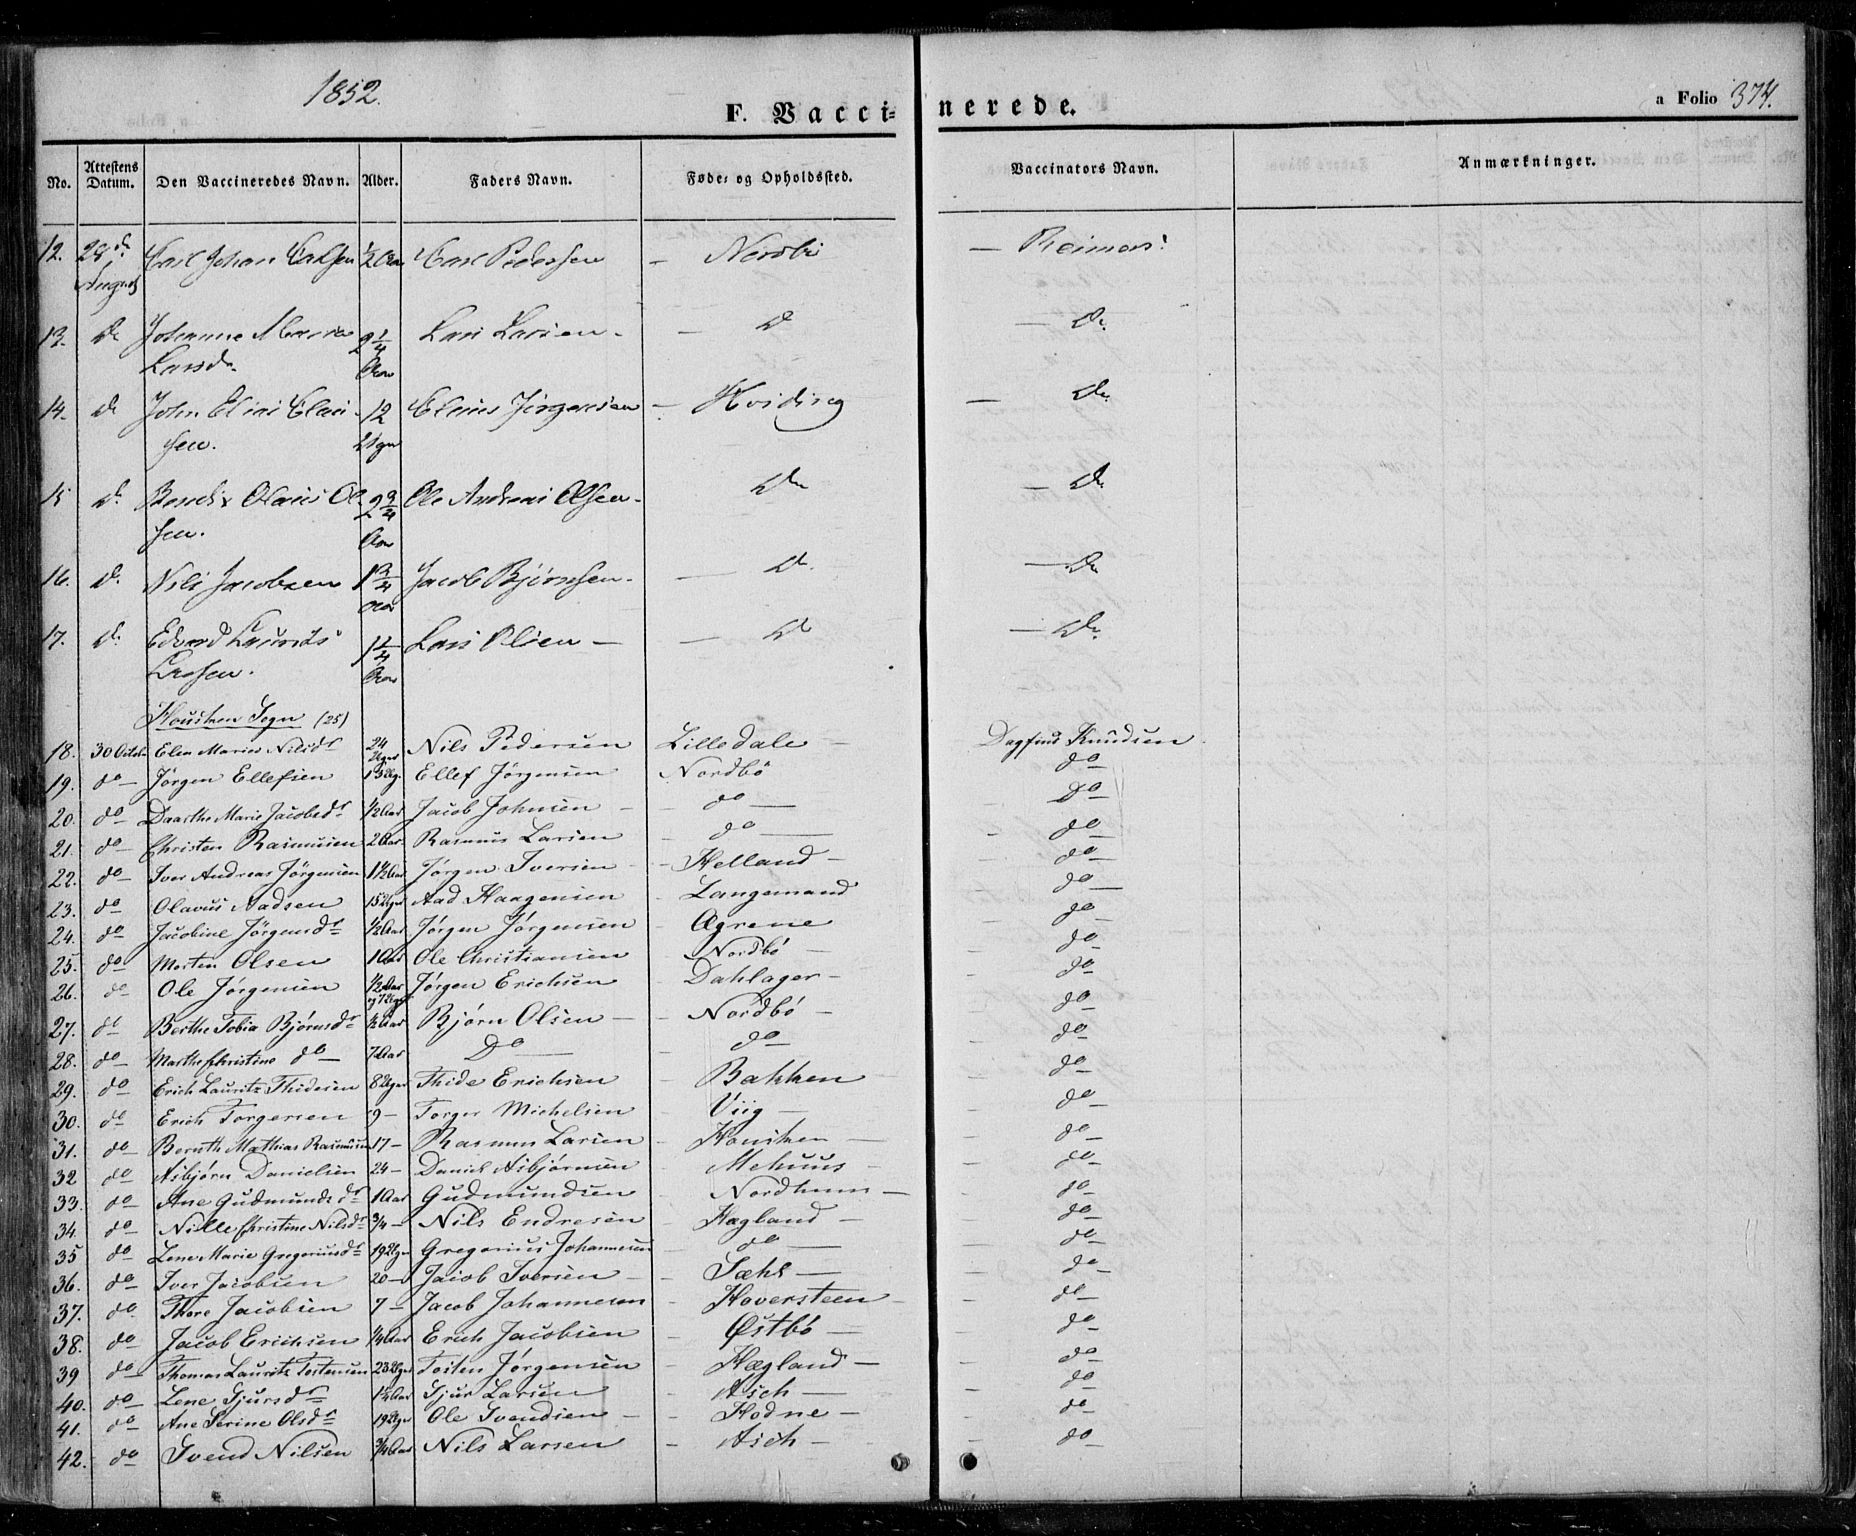 1852.
F. Vaccinerede.
a Folio 374.
No. Attestens Datum. Den Vaccineredes Navn. Alder. Faders Navn. Føde- og Opholdssted. Vaccinators Navn. Anmærkninger.
12. 28de August Carl Johan Carlsen 1/2 Aar Carl Pedersen — Nordbö — Reimers
13. do Johanne Marie Larsd. 2 1/4 Aar Lars Larsen — do — do
14. do John Elias Clausen. 12 Uger Claus Jörgensen — Hviding — do
15 do Bendix Olaus Olsen. 2 3/4 Aar Ole Andreas Olsen. do — do
16. do Nils Jacobsen 1 3/4 Aar Jacob Bjørnsen. — do — do
17. do Edvard Laurits Larsen. 1 1/4 Aar Lars Olsen — — do — do
Housken Sogn (25)
18. 30 Octobr Elen Marie Nilsdr 24 Uger Nils Pedersen Lilledale — Dagfind Knudsen
19. do Jørgen Ellefsen 13 Ug. Ellef Jørgensen Nordbö do
20. do Daarthe Marie Jacobsdr 1/2 Aar Jacob Johnsen — do — Do
21. do Christen Rasmusen 2 Aar Rasmus Larsen do — do
22. do Iver Andreas Jørgensen 1 1/2 Aar Jørgen Iversen — Helland — do
23. do Olavus Aadsen 15 Uger Aad Haagensen Langemand do
24. do Jacobine Jörgensdr 1/2 Aar Jørgen Jørgensen Øgrene do
25. do Morten Olsen 1 Aar Ole Christiansen Nordbö — do
26. do Ole Jørgensen 1/2 Aar og 7 Uger Jørgen Erichsen Dahlager — do
27. do Berthe Tobia Bjørnsdr 1/2 Aar Bjørn Olsen — Nordbö — do
28. do Marthe Christine do — 7 Aar Do — do do
29. do Erich Lauritz Thidesen 8 Uger Thide Erichsen Bakken do
30. do Erich Torgersen 9 — Torger Michelsen Viig — do
31. do Bernth Mathias Rasmusen 17 — Rasmus Larsen Housken — do
32 do Asbjørn Danielsen 24 — Daniel Asbjørnsen Mehuus — do
33. do Ane Gudmundsdr 1 Aar Gudmundsen Nordhuus — do
34. do Nille Christine Nilsdr 3/4 — Nils Endresen Hægland — do
35 do Lene Marie Gregoriusdr 19 Uger Gregorius Johannesen do — do
36. do Iver Jacobsen 20 — Jacob Iversen — Sæhl — do
37. do Thore Jacobsen 7 — Jacob Johannesen Hoversteen do
38. do Jacob Erichsen 1/4 Aar Erich Jacobsen — Østbö — do
39 do Thomas Lauritz Tostensen 23 Uger Tosten Jørgensen Hægland — do
40. do Lene Sjursdr 1 1/2 Aar Sjur Larsen Asch — do
41. do Ane Serine Olsdr 19 Uger Ole Svendsen — Hodne — do
42. do Svend Nilsen 3/4 Aar Nils Larsen — Asch — do